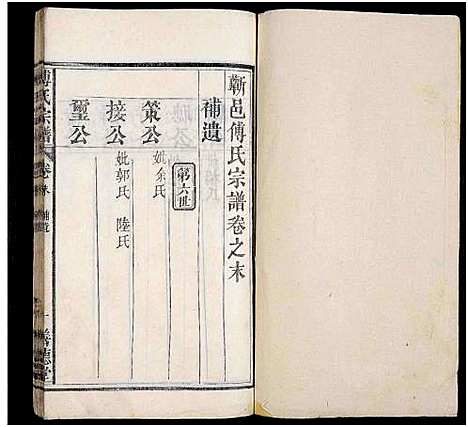 蘄邑傅氏宗譜卷之末
補遺
第六世
策公
妣余氏
接公
妣郭氏 陸氏
璽公
傅氏宗譜
卷末
補遺
一
善德堂